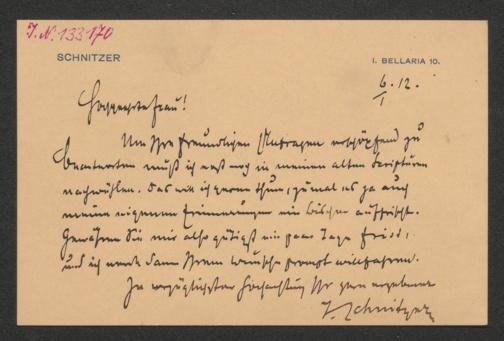 I. N. 133170
SCHNITZER
I. BELLARIA 10.
6./I 12.
Hochgeehrte Frau!
Um Ihre freundlichen Anfragen erschöpfend zu
beantworten muß ich erst noch in meinen alten Scripturen
nachwühlen. Das will ich gerne thun, zumal es ja auch
meine eigenen Erinnerungen ein bischen auffrischt.
Gewähren Sie mir also gütigst ein paar Tage Frist,
und ich werde dann Ihrem Wunsche prompt willfahren.
In vorzüglichster Hochachtung Ihr ganz ergebener
Schnitzer